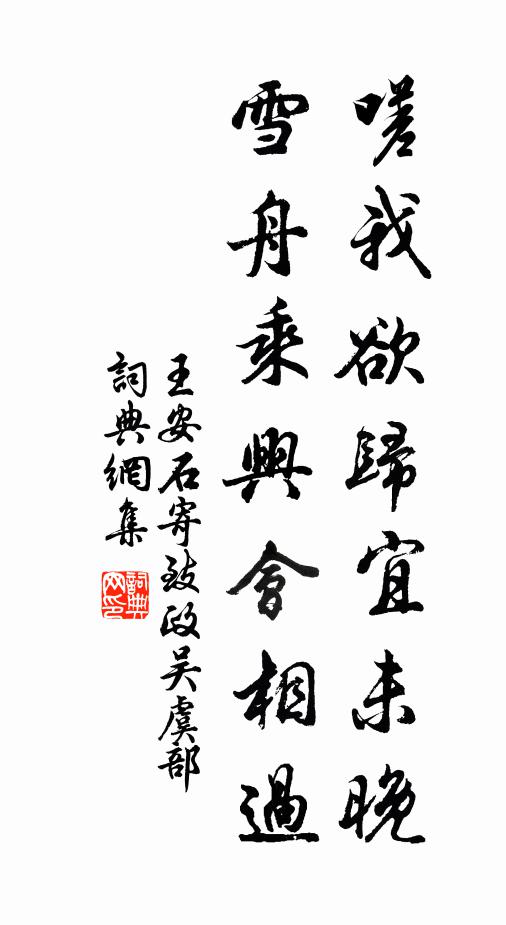 嗟我欲歸宜未晚
雪舟乘興會相過
王安石寄致政吴虞部
詞典網集
詞典网印